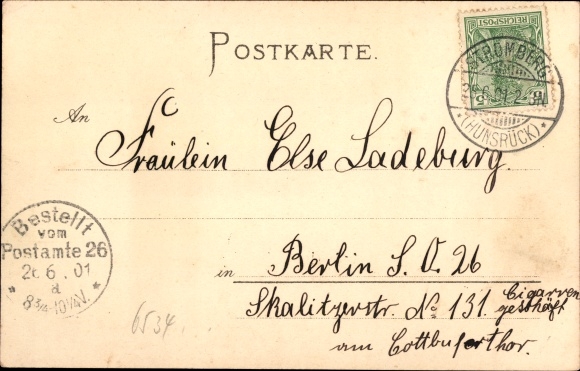 POSTKARTE.
REICHSPOST
5
STROMBERG
6.01.2-3N.
* (HUNSRÜCK) *
An
Fräulein Else Ladeburg.
Bestellt
vom
Postamte 26
26.6.01
a
8¾-10¼V.
in Berlin S. O. 26
Skalitzerstr. No 131. Cigarren
geschäft
am Cottbuserthor.
6534